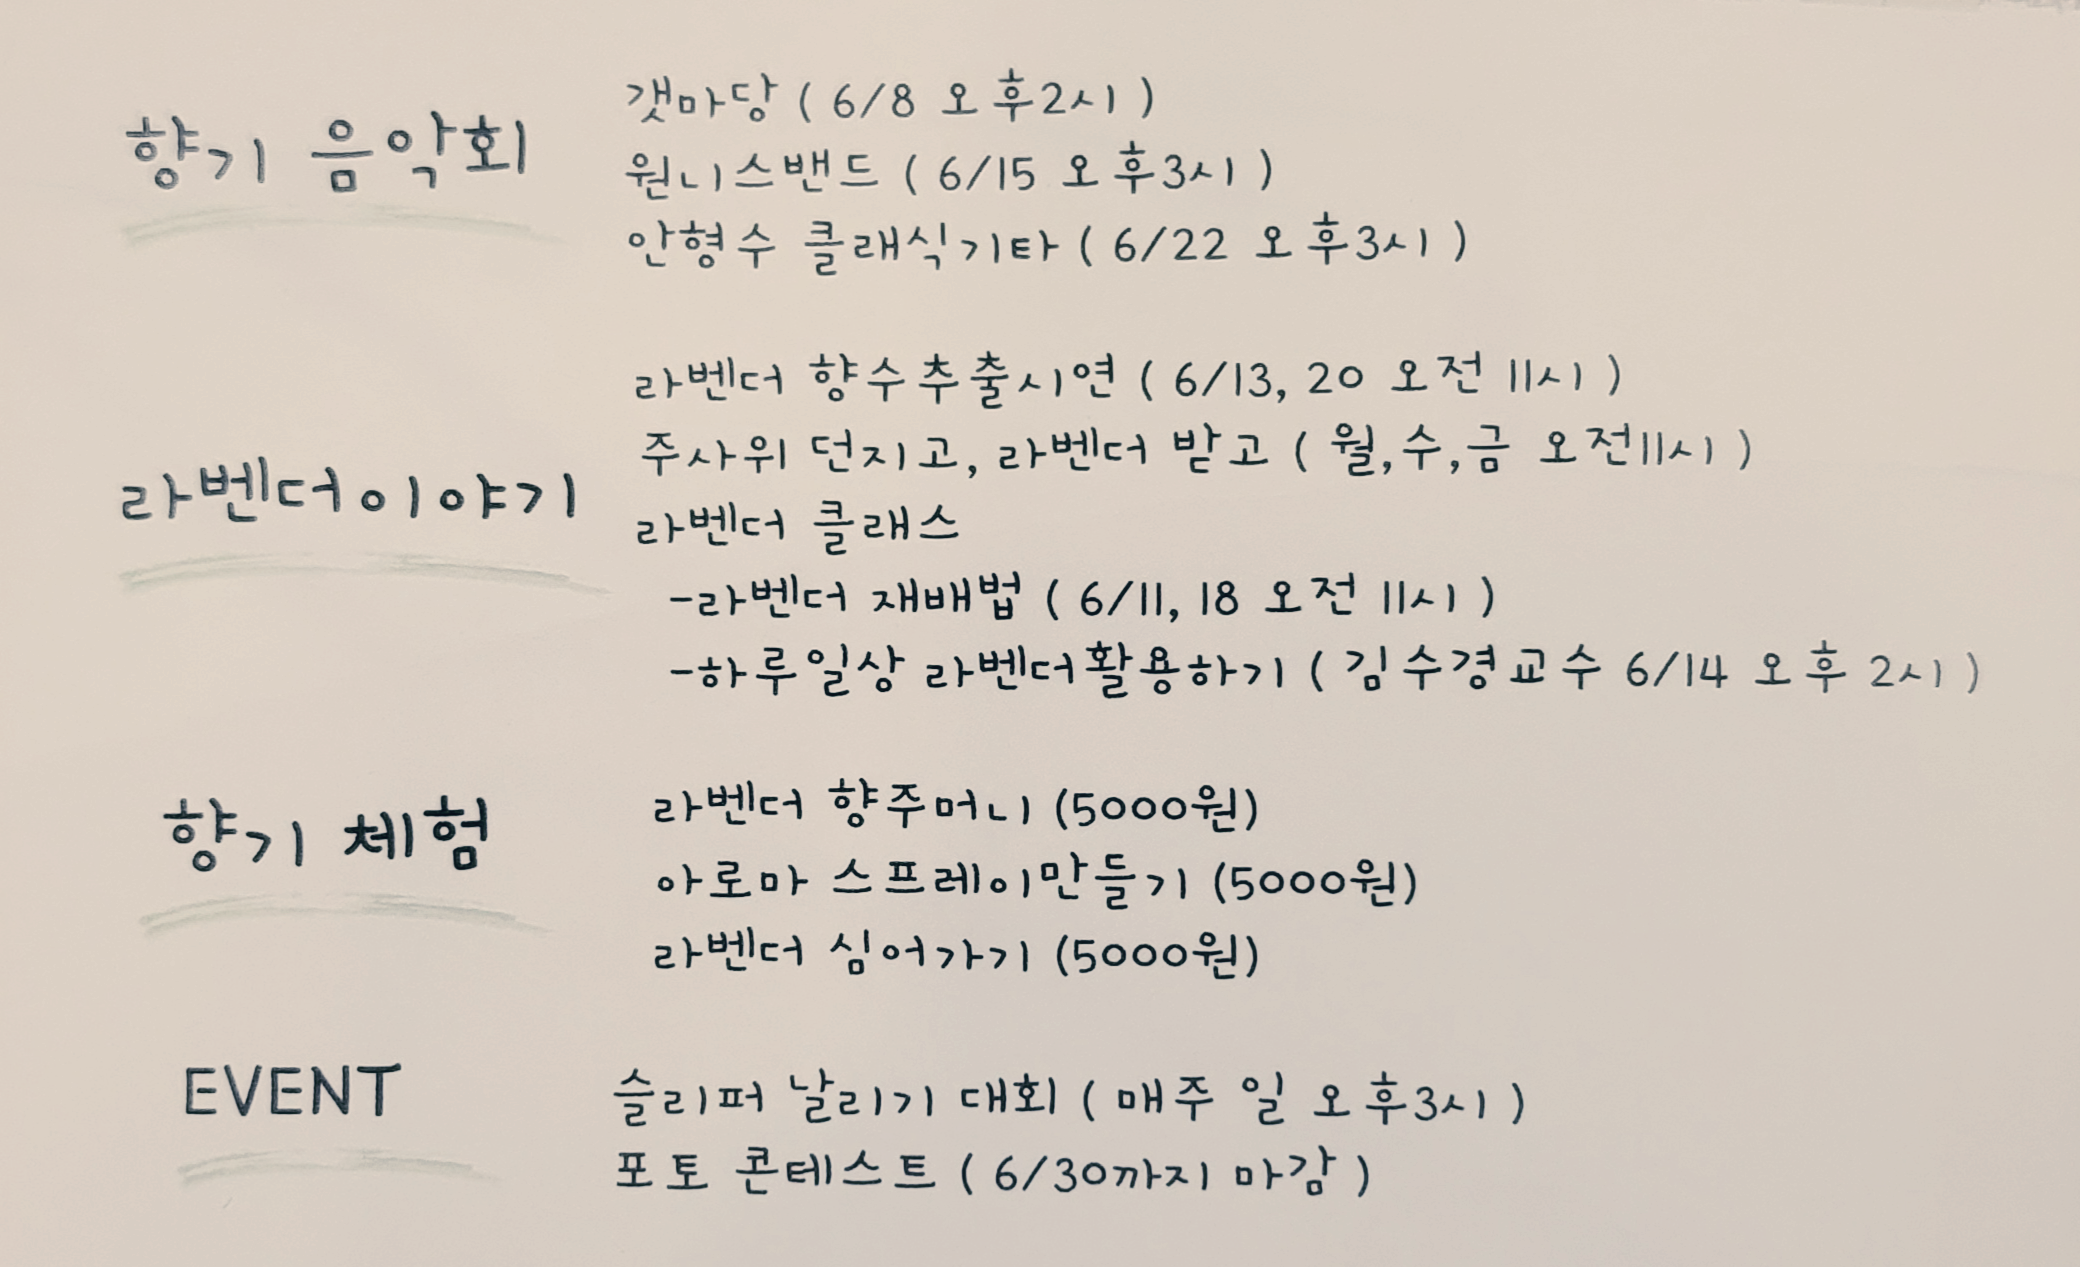 향기 음악회
갯마당 ( 6/8 오후2시 )
원니스밴드 ( 6/15 오후3시 )
안형수 클래식기타 ( 6/22 오후3시 )
라벤더이야기
라벤더 향수추출시연 ( 6/13, 20 오전 11시 )
주사위 던지고, 라벤더 받고 ( 월,수,금 오전11시 )
라벤더 클래스
-라벤더 재배법 ( 6/11, 18 오전 11시 )
-하루일상 라벤더활용하기 ( 김수경교수 6/14 오후 2시 )
향기 체험
라벤더 향주머니 (5000원)
아로마 스프레이만들기 (5000원)
라벤더 심어가기 (5000원)
EVENT
슬리퍼 날리기 대회 ( 매주 일 오후3시 )
포토 콘테스트 ( 6/30까지 마감 )